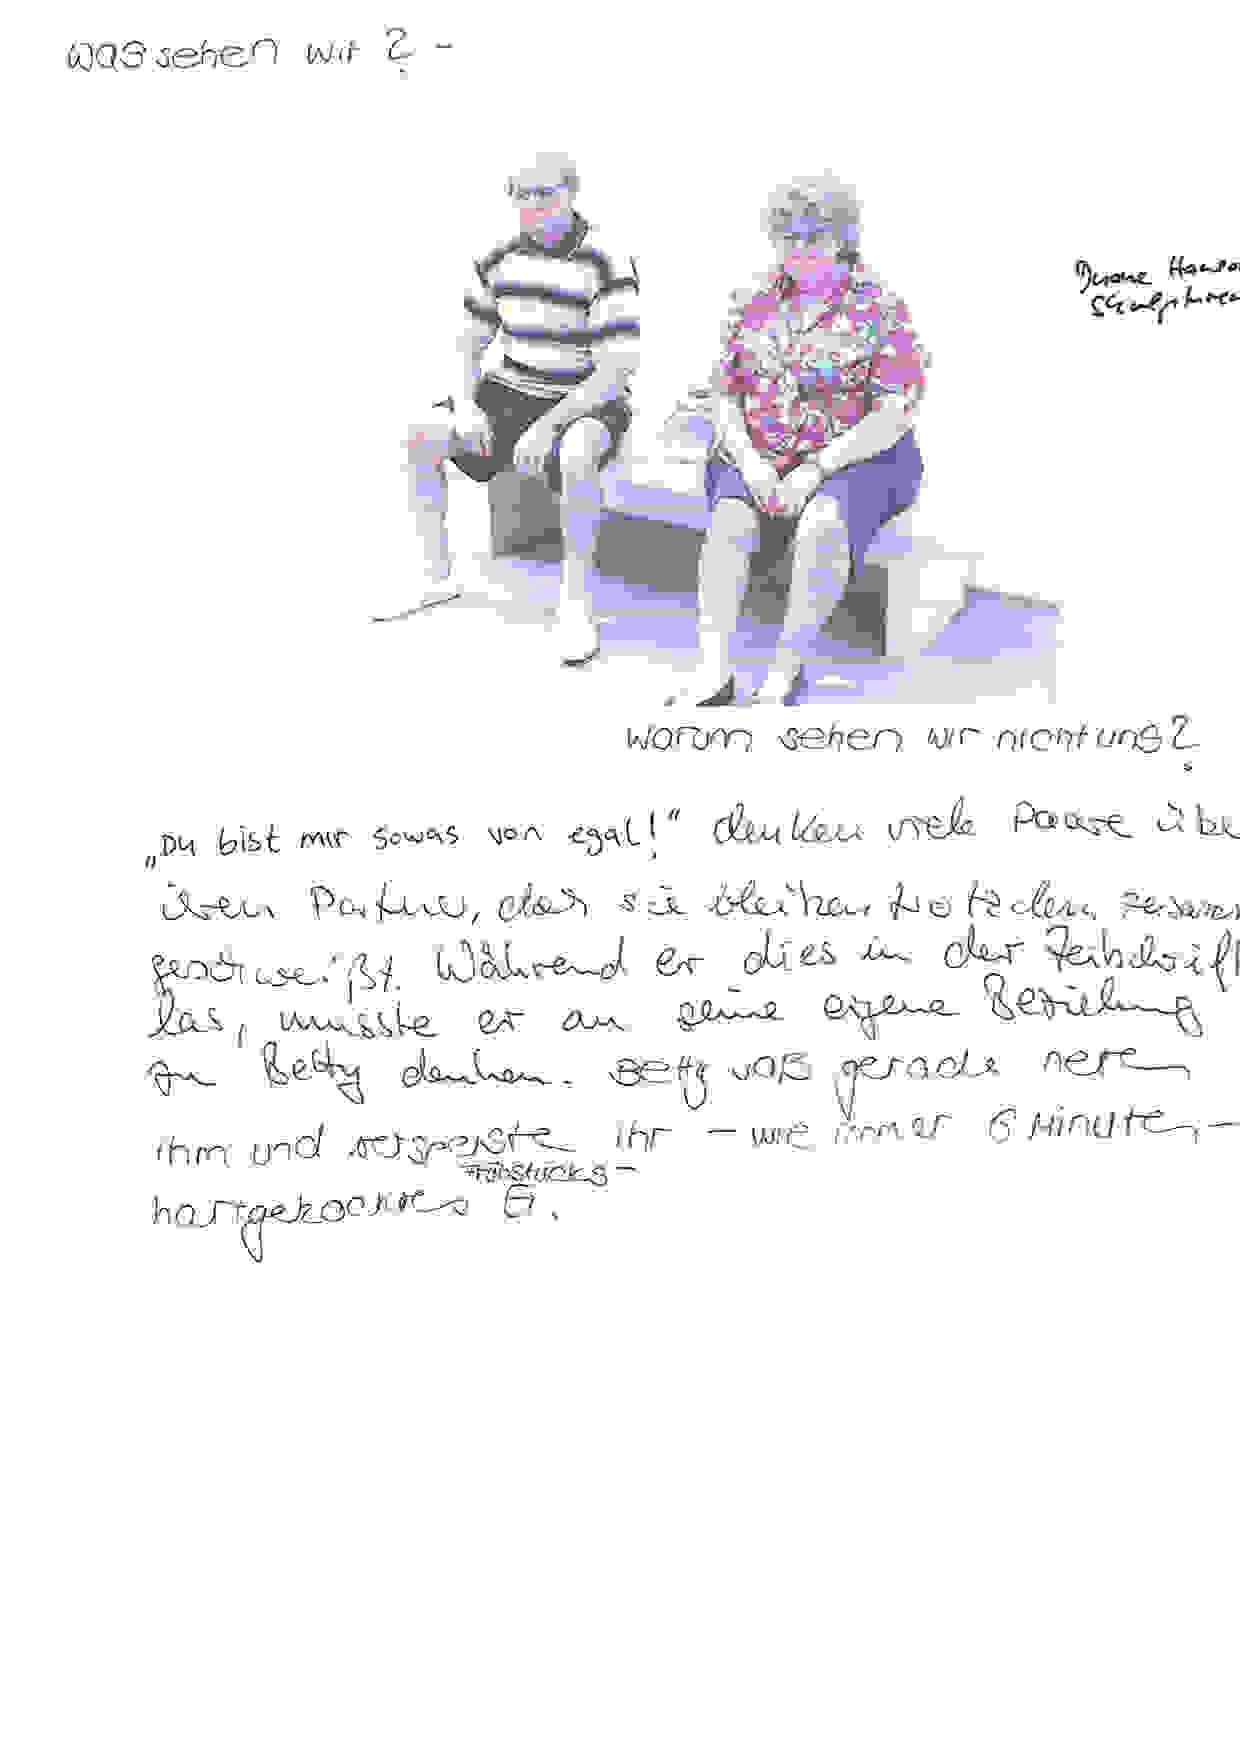 was sehen wir? -
Duane Hanson
Skulpturen
warum sehen wir nicht uns?
„Du bist mir sowas von egal!“ denken viele Paare übe
ihren Partner, doch sie bleiben trotzdem zusammen
geschweißt. Während er dies in der Zeitschrift
las, musste er an seine eigene Beziehung
zu Betty denken. Betty saß gerade neben
ihm und verspeiste ihr - wie immer 6 Minuten -
Frühstücks-
hartgekochtes Ei.